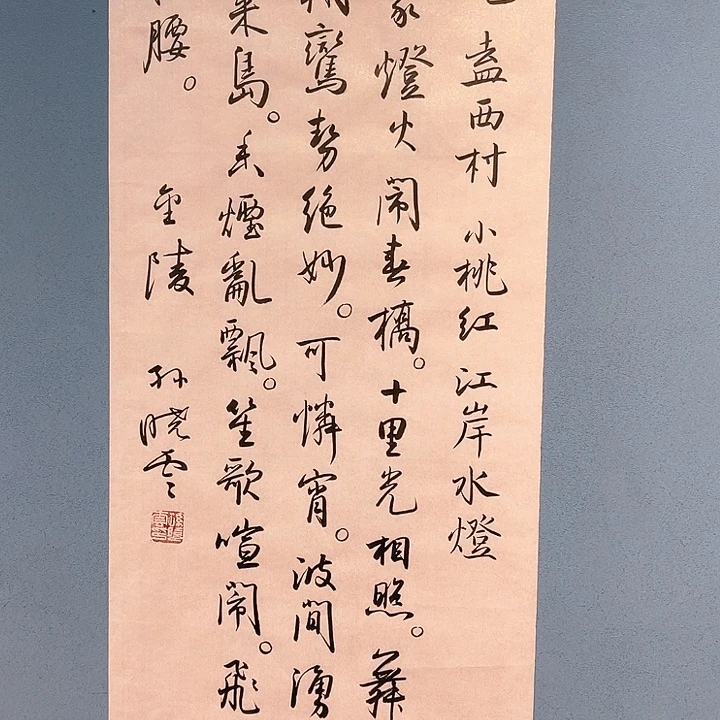 盍西村 小桃紅 江岸水燈
家燈火鬧春橋。十里光相照。舞
鸞勢絶妙。可憐宵。波間湧
萊島。香煙亂飄。笙歌喧鬧。飛
腰。 金陵 孙晓雲